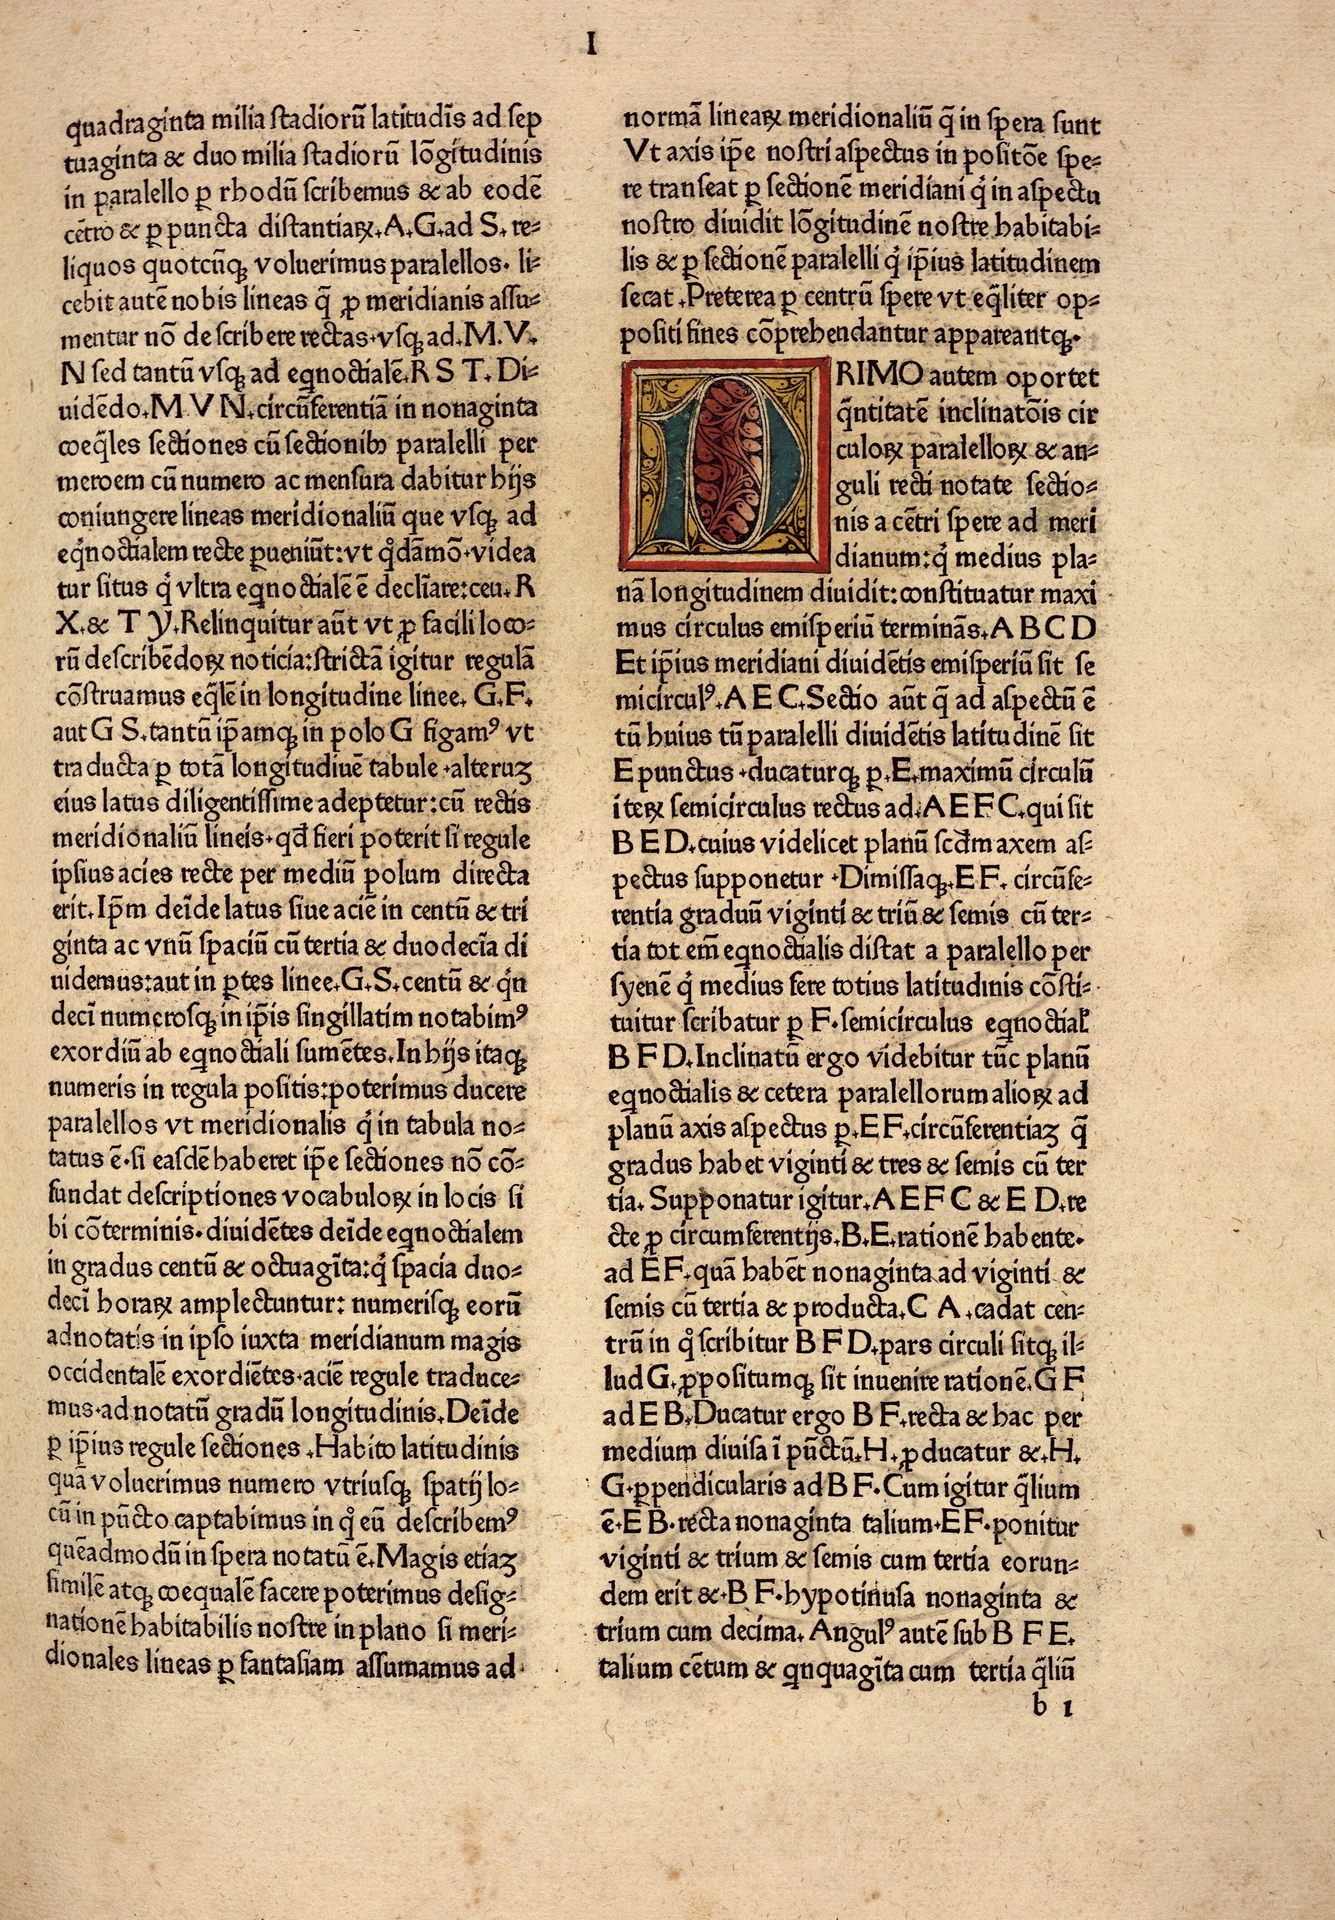 I
quadraginta milia ſtadiorū latitudīs ad ſep
tuaginta & duo milia ſtadiorū lōgitudinis
in paralello ꝑ rhodū ſcribemus & ab eodē
cētro & ꝑ puncta diſtantiaꝝ.A.G.ad S. re⸗
liquos quotcūqꝫ voluerimus paralellos. li⸗
cebit autē nobis lineas q̄ ꝓ meridianis aſſu⸗
mentur nō deſcribere rectas.vſqꝫ ad.M.V.
N ſed tantū vſqꝫ ad eqnoctialē.R S T. Di⸗
uidēdo.M V N.circūferentiā in nonaginta
coeq̄les ſectiones cū ſectionibꝰ paralelli per
meroem cū numero ac menſura dabitur hijs
coniungere lineas meridionaliū que vſqꝫ ad
eqͥnoctialem recte ꝑueniūt:vt qͦdāmō.videa
tur ſitus qͥ vltra eqnoctialē ē decliare:ceu.R
X.& T y.Relinquitur aūt vt ꝓ facili loco⸗
rū deſcribēdoꝝ noticia:ſtrictā igitur regulā
cōſtruamus eq̄lē in longitudine linee. G.F.
aut G S.tantū ip̄amqꝫ in polo G figamꝰ vt
traducta ꝑ totā longitudiuē tabule .alteruꝫ
eius latus diligentiſſime adeptetur:cū rectis
meridionaliū lineis.qđ fieri poterit ſi regule
ipſius acies recte per mediū polum directa
erit.Ip̄m deīde latus ſiue aciē in centū & tri
ginta ac vnū ſpaciū cū tertia & duodecīa di
uidemus:aut in ꝑtes linee.G.S.centū & qͥn
decī numeroſqꝫ in ip̄is ſingillatim notabimꝰ
exordiū ab eqnoctiali ſumētes.In hijs itaqꝫ
numeris in regula poſitis:poterimus ducere
paralellos vt meridionalis qͥ in tabula no⸗
tatus ē.ſi eaſdē haberet ip̄e ſectiones nō cō⸗
fundat deſcriptiones vocabuloꝝ in locis ſi
bi cōterminis.diuidētes deīde eqnoctialem
in gradus centū & octuagīta:qͥ ſpacia duo⸗
decī horaꝝ amplectuntur: numeriſqꝫ eorū
adnotatis in ipſo iuxta meridianum magis
occidentalē exordiētes.aciē regule traduce⸗
mus.ad notatū gradū longitudinis.Deīde
ꝑ ip̄ius regule ſectiones .Habito latitudinis
quā voluerimus numero vtriuſqꝫ ſpatij lo⸗
cū in pūcto captabimus in qͦ eū deſcribemꝰ
quēadmodū in ſpera notatū ē.Magis etiaꝫ
ſimilē atqꝫ coequalē facere poterimus deſig⸗
nationē habitabilis noſtre in plano ſi meri⸗
dionales lineas ꝑ fantaſiam aſſumamus ad
normā lineaꝝ meridionaliū q̄ in ſpera ſunt
Vt axis ip̄e noſtri aſpectus in poſitōe ſpe⸗
re tranſeat ꝑ ſectionē meridiani qͥ in aſpectu
noſtro diuidit lōgitudinē noſtre habitabi⸗
lis & ꝑ ſectionē paralelli qͥ ip̄ius latitudinem
ſecat .Preterea ꝑ centrū ſpere vt eq̄liter op⸗
poſiti fines cōprehendantur appareantqꝫ.
PRIMO autem oportet
q̄ntitatē inclinatōis cir
culoꝝ paralelloꝝ & an⸗
guli recti notate ſectio⸗
nis a cētri ſpere ad meri
dianum:qͥ medius pla⸗
nā longitudinem diuidit:conſtituatur maxi
mus circulus emiſperiū terminās.A B C D
Et ip̄ius meridiani diuidētis emiſperiū ſit ſe
micirculꝰ.A E C.Sectio aūt q̄ ad aſpectū ē
tū huius tū paralelli diuidētis latitudinē ſit
E punctus .ducaturqꝫ ꝑ.E.maximū circulū
iteꝝ ſemicirculus rectus ad.A E F C.qui ſit
B E D.cuius videlicet planū ſcđm axem aſ⸗
pectus ſupponetur .Dimiſſaqꝫ.E F. circūfe⸗
rentia graduū viginti & triū & ſemis cū ter⸗
tia tot em̄ eqnoctialis diſtat a paralello per
ſyenē qͥ medius fere totius latitudinis cōſti⸗
tuitur ſcribatur ꝑ F.ſemicirculus eqnoctial̄
B F D.Inclinatū ergo videbitur tūc planū
eqnoctialis & cetera paralellorum alioꝝ ad
planū axis aſpectus ꝑ.E F.circūferentiaꝫ q̄
gradus habet viginti & tres & ſemis cū ter
tia. Supponatur igitur.A E F C & E D.re
cte ꝓ circumferentijs.B.E.rationē habente.
ad E F.quā habēt nonaginta ad viginti &
ſemis cū tertia & producta.C A .cadat cen⸗
trū in qͦ ſcribitur B F D.pars circuli ſitqꝫ il⸗
lud G.ꝓpoſitumqꝫ ſit inuenire rationē.G F
ad E B.Ducatur ergo B F.recta & hac per
medium diuiſa ī pūctū.H.ꝓducatur &.H.
G.ꝑpendicularis ad B F.Cum igitur q̄lium
ē.E B.recta nonaginta talium.E F.ponitur
viginti & trium & ſemis cum tertia eorun⸗
dem erit &.B F.hypotinuſa nonaginta &
trium cum decima. Angulꝰ autē ſub B F E.
talium cētum & qnquagīta cum tertia q̄liū
b 1